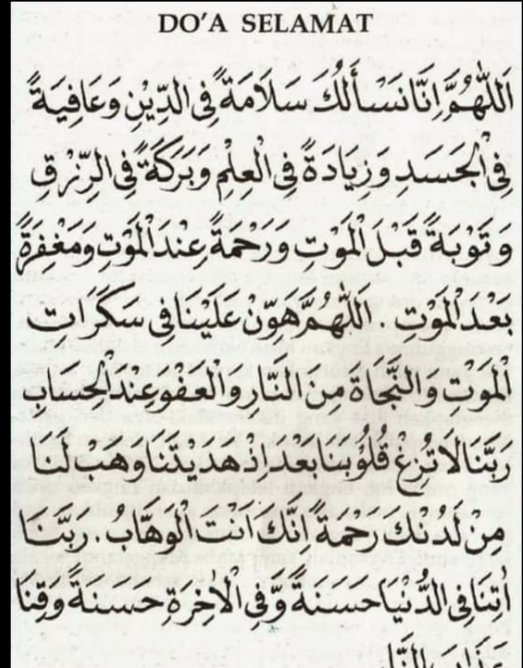 DO'A SELAMAT
اَللّٰهُمَّ اِنَّا نَسْأَلُكَ سَلَامَةً فِى الدِّيْنِ وَعَافِيَةً
فِى الْجَسَدِ وَزِيَادَةً فِى الْعِلْمِ وَبَرَكَةً فِى الرِّزْقِ
وَتَوْبَةً قَبْلَ الْمَوْتِ وَرَحْمَةً عِنْدَ الْمَوْتِ وَمَغْفِرَةً
بَعْدَ الْمَوْتِ. اَللّٰهُمَّ هَوِّنْ عَلَيْنَا فِى سَكَرَاتِ
الْمَوْتِ وَالنَّجَاةَ مِنَ النَّارِ وَالْعَفْوَ عِنْدَ الْحِسَابِ
رَبَّنَا لَا تُزِغْ قُلُوْبَنَا بَعْدَ اِذْ هَدَيْتَنَا وَهَبْ لَنَا
مِنْ لَدُنْكَ رَحْمَةً اِنَّكَ اَنْتَ الْوَهَّابُ. رَبَّنَا
اٰتِنَا فِى الدُّنْيَا حَسَنَةً وَّفِى الْاٰخِرَةِ حَسَنَةً وَّقِنَا